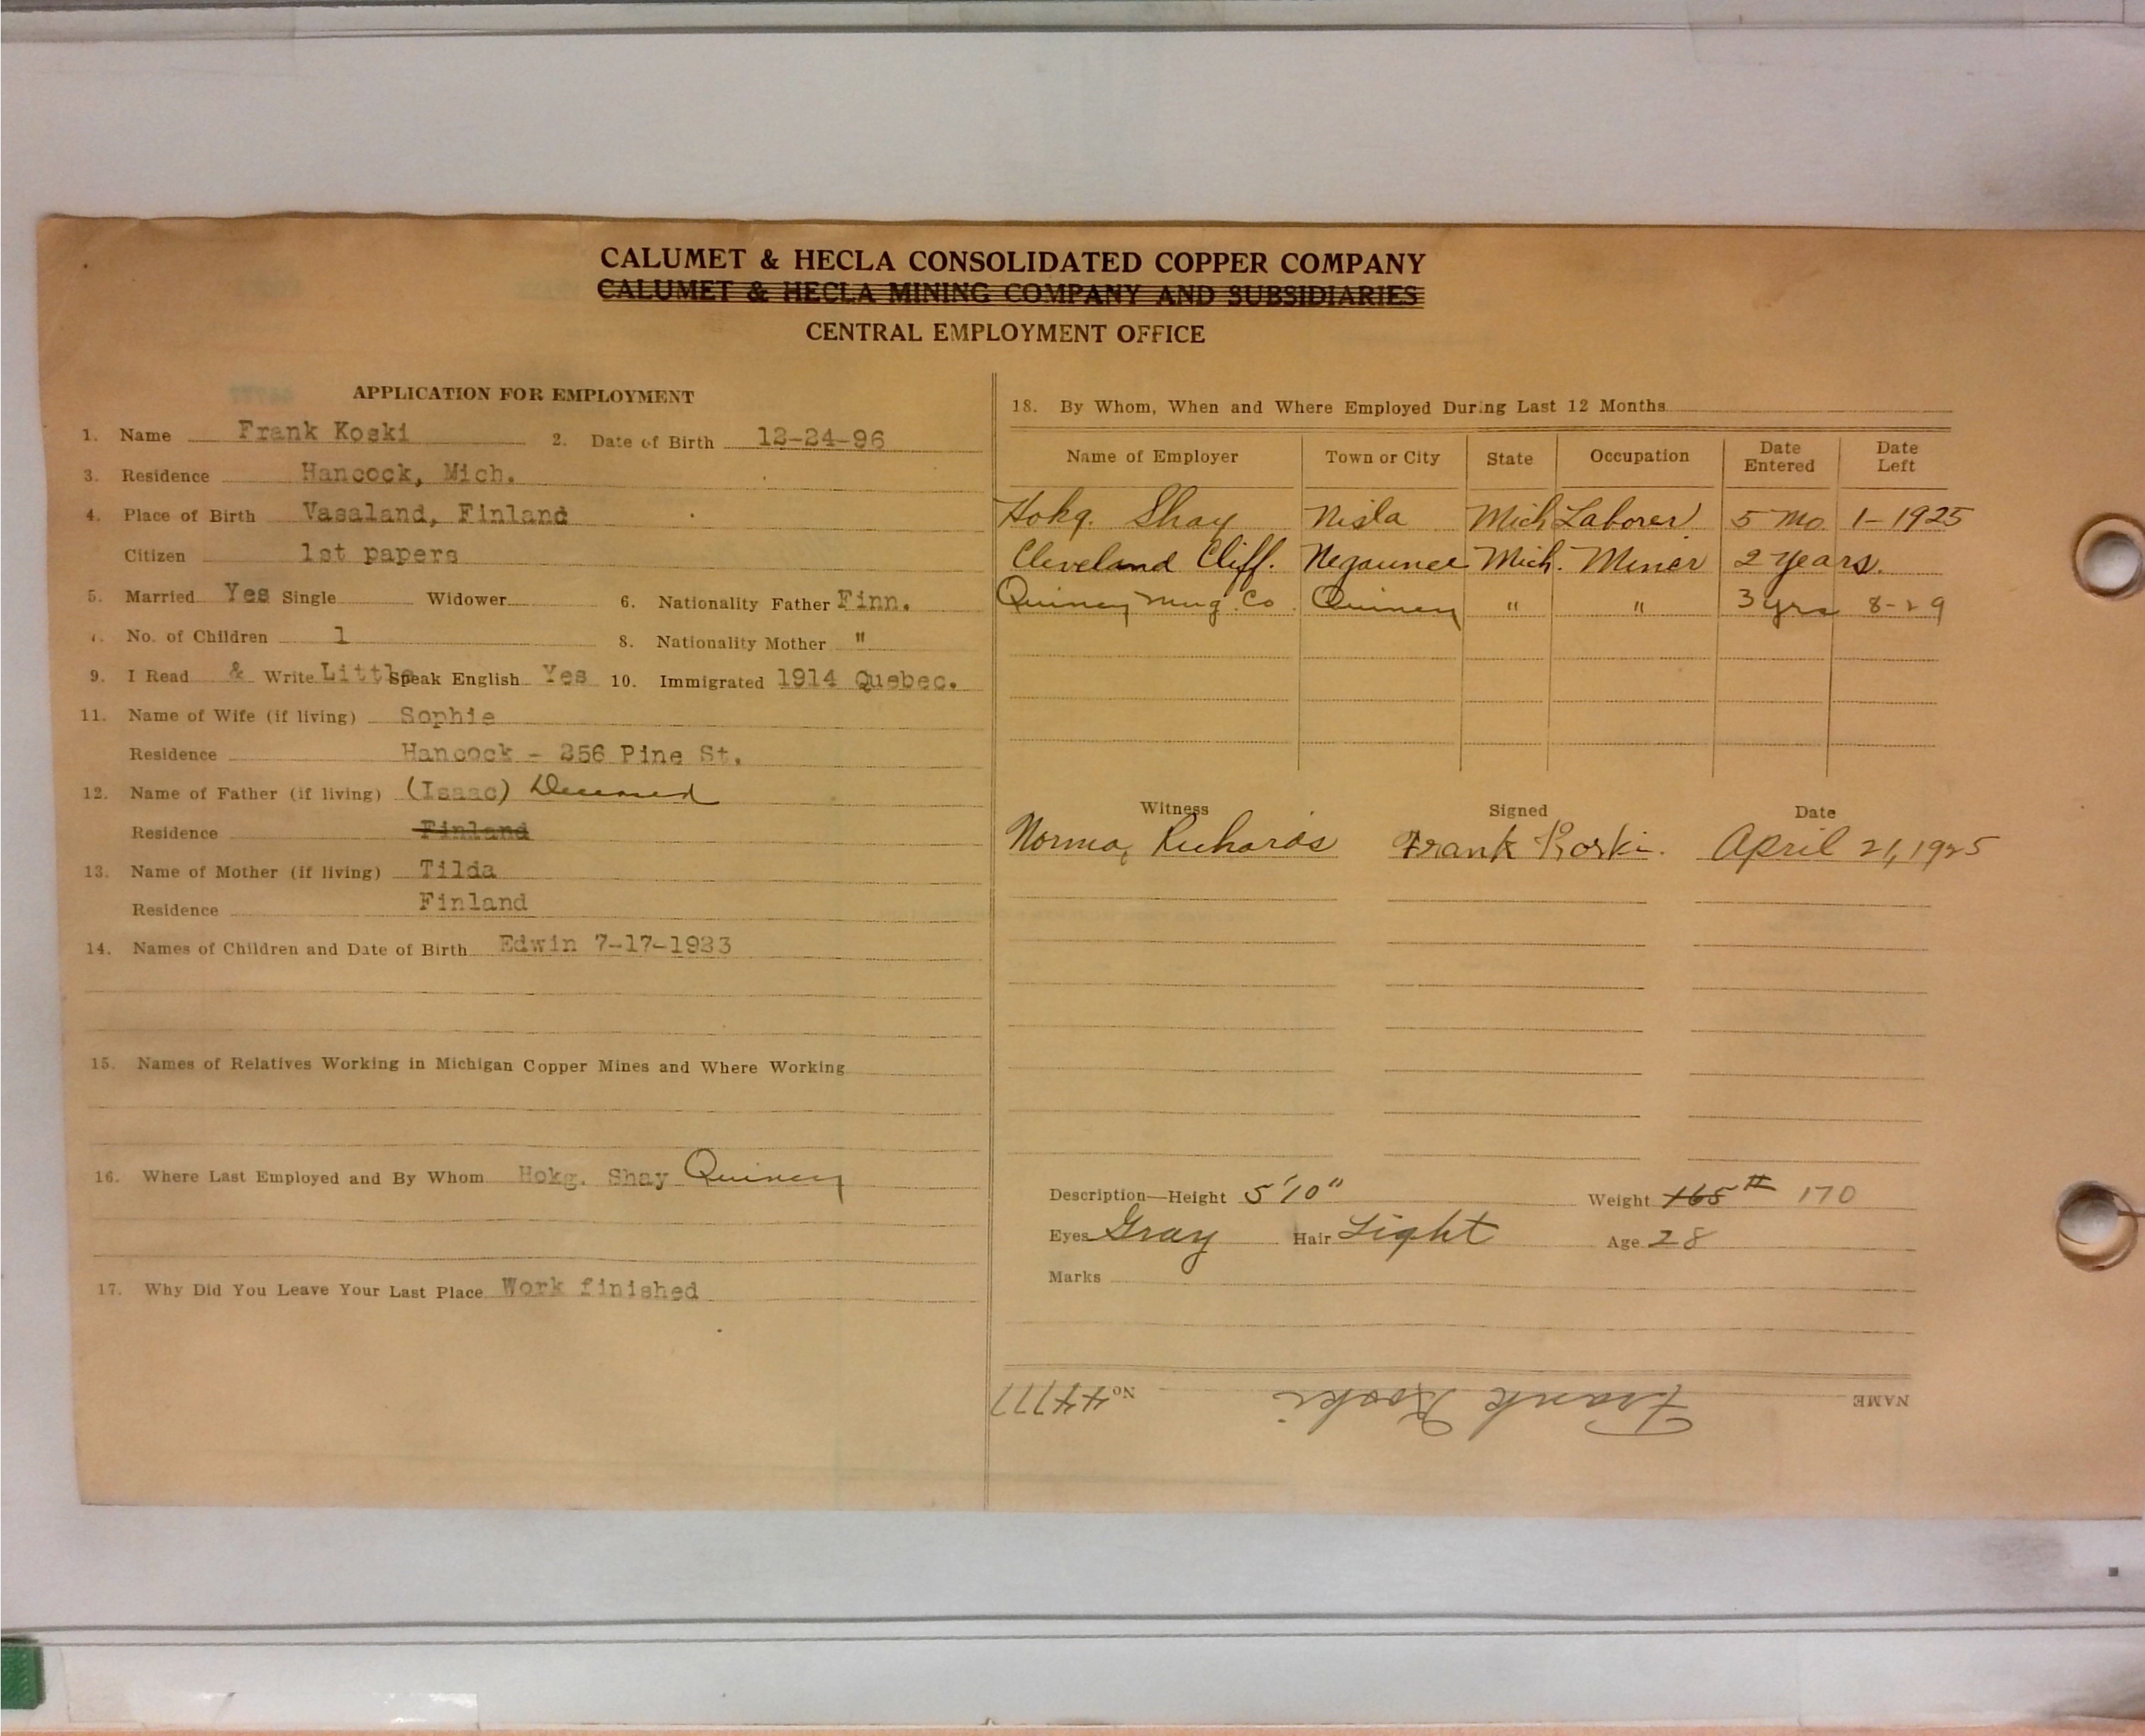 CALUMET & HECLA CONSOLIDATED COPPER COMPANY
CALUMET & HECLA MINING COMPANY AND SUBSIDIARIES
CENTRAL EMPLOYMENT OFFICE
APPLICATION FOR EMPLOYMENT
1. Name Frank Koski 2. Date of Birth 12-24-96
3. Residence Hancock, Mich.
4. Place of Birth Vasaland, Finland
Citizen 1st papers
5. Married Yes Single Widower 6. Nationality Father Finn.
7. No. of Children 1 8. Nationality Mother "
9. I Read & Write Little Speak English Yes 10. Immigrated 1914 Quebec.
11. Name of Wife (if living) Sophie
Residence Hancock - 356 Pine St.
12. Name of Father (if living) (Isaac) Deceased
Residence Finland
13. Name of Mother (if living) Tilda
Residence Finland
14. Names of Children and Date of Birth Edwin 7-17-1923
15. Names of Relatives Working in Michigan Copper Mines and Where Working
16. Where Last Employed and By Whom Hokg. Shay Quincy
17. Why Did You Leave Your Last Place Work finished
18. By Whom, When and Where Employed During Last 12 Months
Name of Employer Town or City State Occupation Date Entered Date Left
Hokg. Shay Nisla Mich Laborer 5 Mo. 1-1925
Cleveland Cliff. Negaunee Mich. Miner 2 years.
Quincy Mng. Co. Quincy " " 3 yrs 8-29
Witness Signed Date
Norma Richards Frank Koski. April 21, 1925
Description—Height 5'10" Weight 165# 170
Eyes Gray Hair Light Age 28
Marks
NAME Frank Koski No. 44777